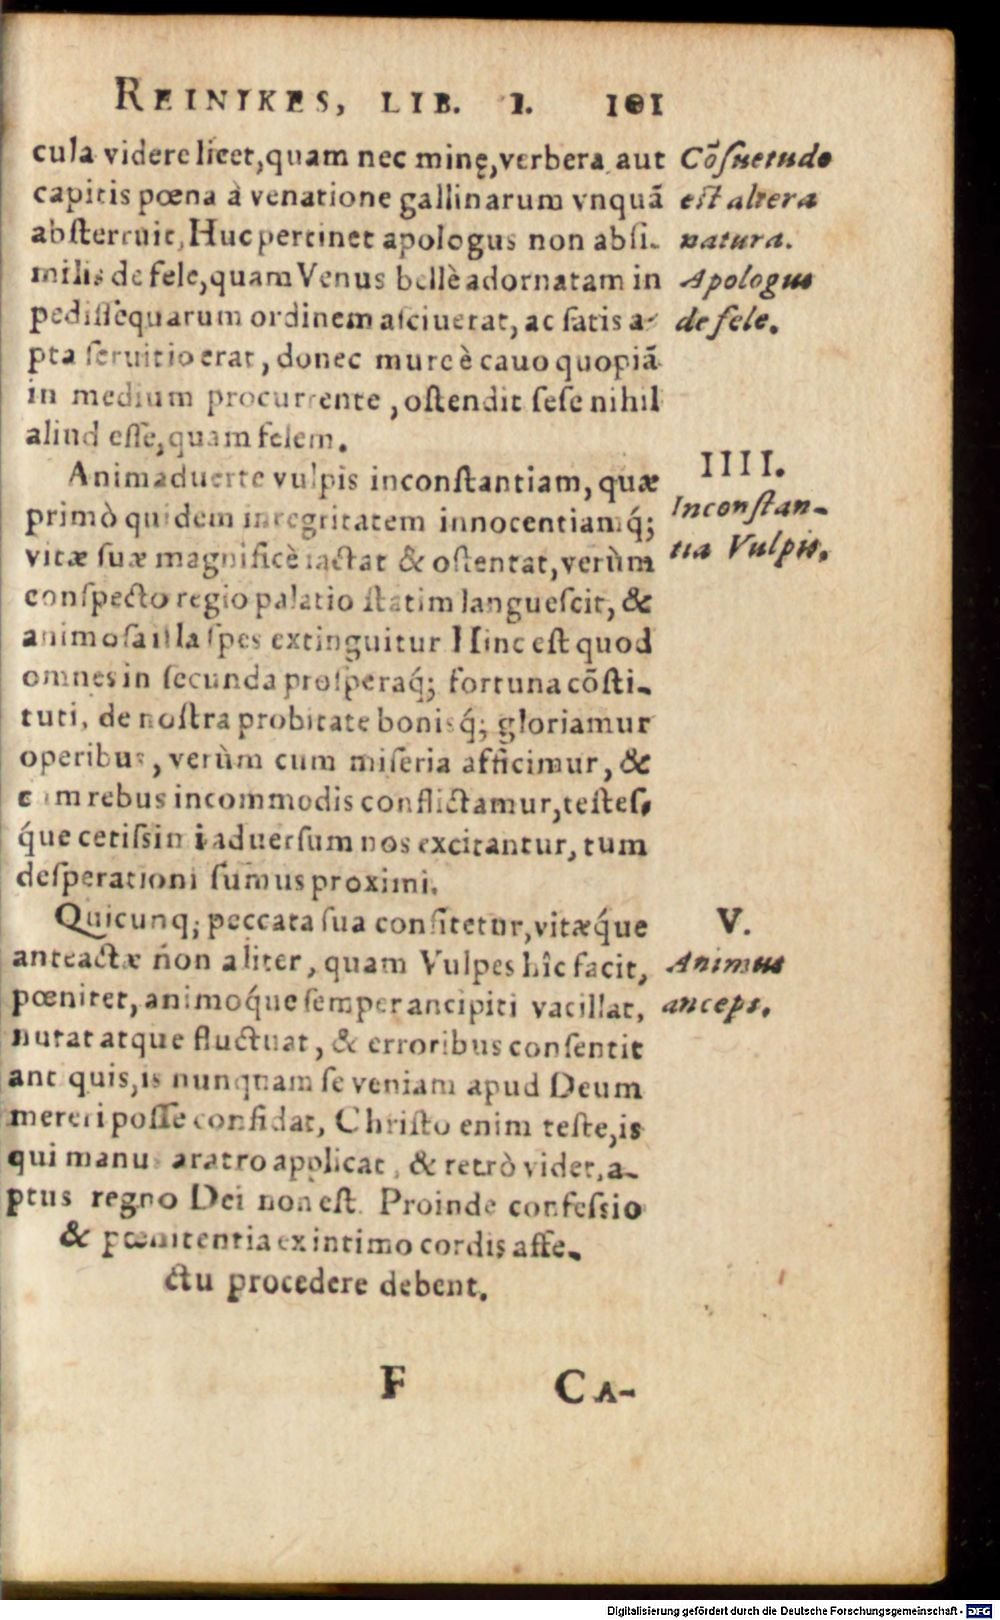 REINIKES, LIB. I. 101
cula videre licet, quam nec minę, verbera aut
capitis pœna à venatione gallinarum vnquã
absterruit, Huc pertinet apologus non absi-
milis de fele, quam Venus bellè adornatam in
pedissequarum ordinem asciuerat, ac satis a-
pta seruitio erat, donec mure è cauo quopiã
in medium procurrente, ostendit sese nihil
aliud esse, quam felem.
Cõsuetudo
est altera
natura.
Apologus
de fele.
Animaduerte vulpis inconstantiam, quæ
primò quidem integritatem innocentiamq́;
vitæ suæ magnificè iactat & ostentat, verùm
conspecto regio palatio statim languescit, &
animosa illa spes extinguitur Hinc est quod
omnes in secunda prosperaq́; fortuna cõsti-
tuti, de nostra probitate bonisq́; gloriamur
operibus, verùm cum miseria afficimur, &
cum rebus incommodis conflictamur, testes-
q́ue cetissimi aduersum nos excitantur, tum
desperationi sumus proximi.
IIII.
Inconstan-
tia Vulpis.
Quicunq; peccata sua confitetur, vitæq́ue
anteactæ non aliter, quam Vulpes hîc facit,
pœnitet, animoq́ue semper ancipiti vacillat,
nutat atque fluctuat, & erroribus consentit
ant quis, is nunquam se veniam apud Deum
mereri posse confidat, Christo enim teste, is
qui manus aratro applicat, & retrò videt, a-
ptus regno Dei non est. Proinde confessio
& pœnitentia ex intimo cordis affe-
ctu procedere debent.
V.
Animus
anceps.
F CA-
Digitalisierung gefördert durch die Deutsche Forschungsgemeinschaft - DFG